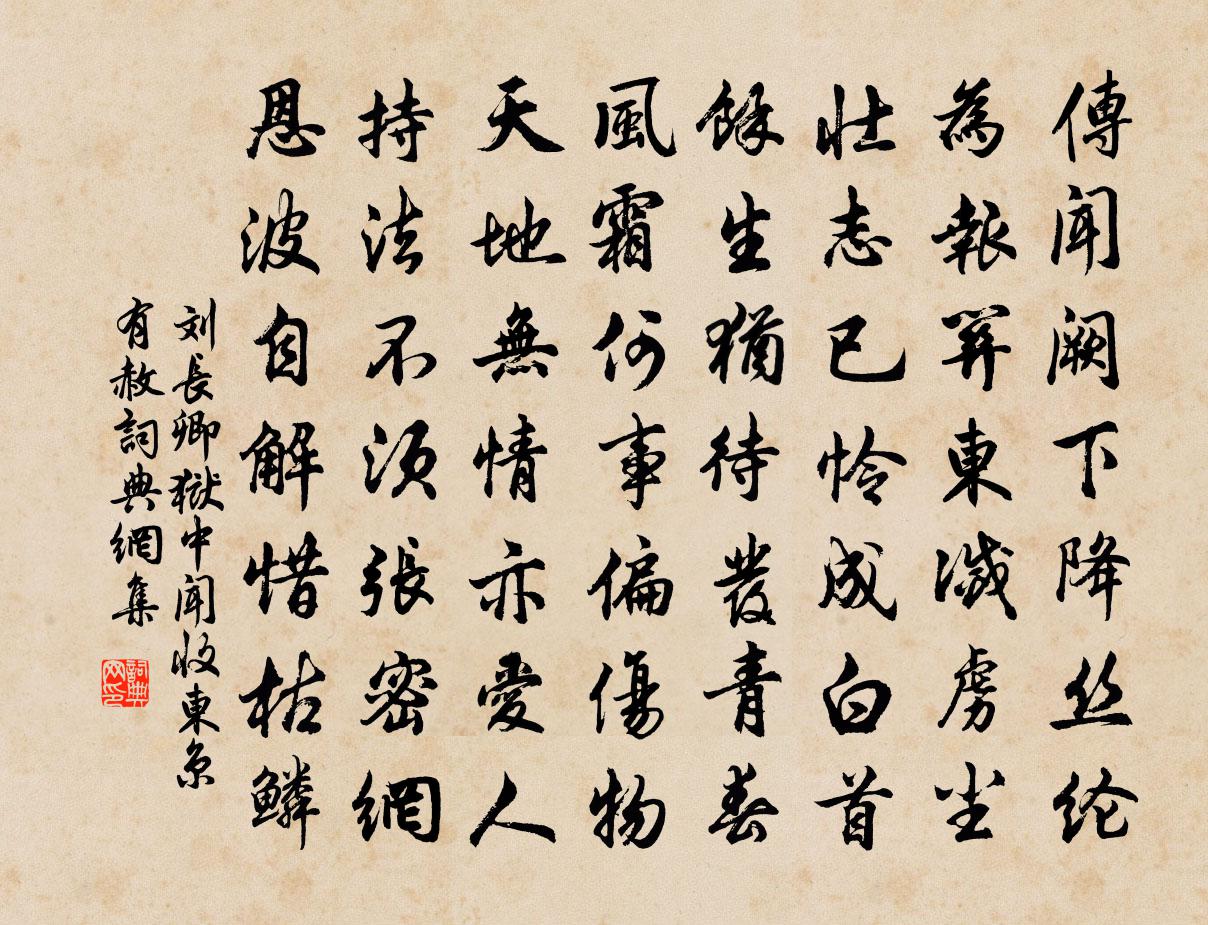 傳闻阙下降丝纶
為報関東滅虜尘
壮志已怜成白首
餘生猶待發青春
風霜何事偏傷物
天地無情亦愛人
持法不须張密網
恩波自解惜枯鱗
刘長卿獄中闻收東京
有赦詞典網集
詞典
网印